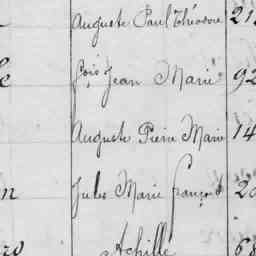 Auguste Paul Théodore 21
fçois Jean Marie 92
Auguste Pierre Marie 14
n Jules Marie françois 20
Achille 68